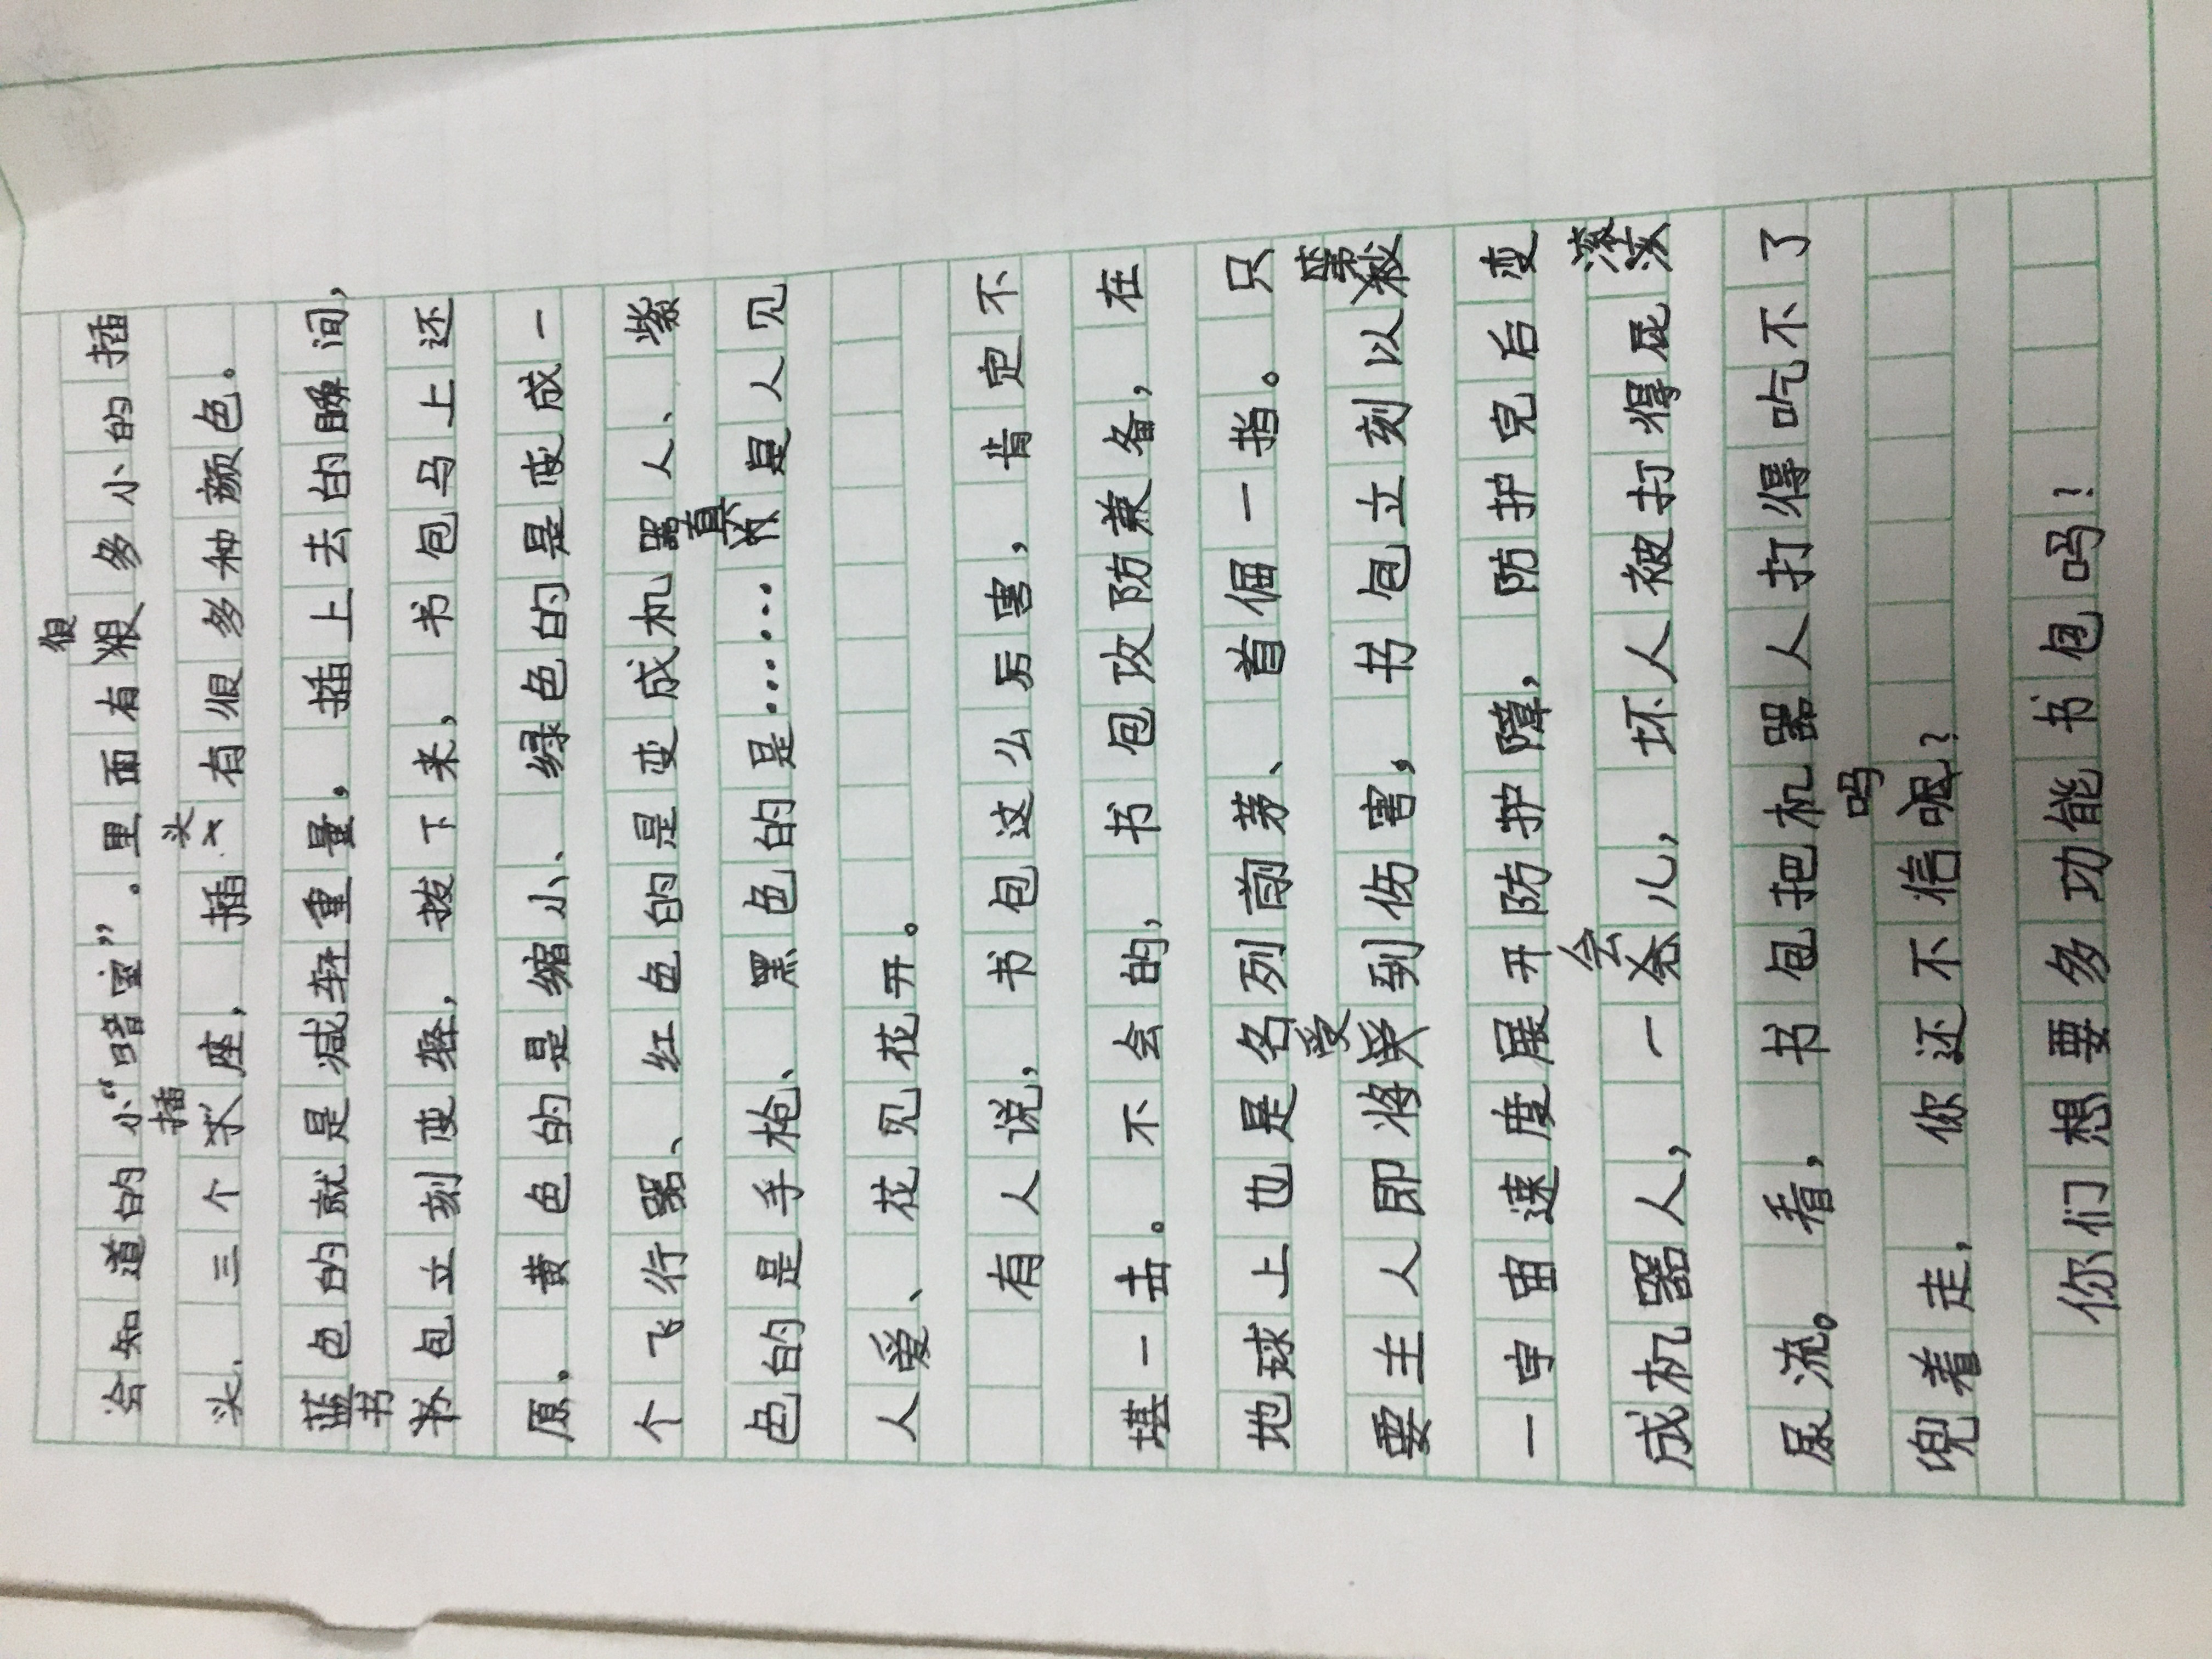 会知道的小“暗室”.里面有很多小的插
头.三个插座，插头有很多种颜色。
蓝色的就是减轻重量.插上去的瞬间，
书包立刻变轻，拔下来，书包马上还
原.黄色的是缩小、绿色的是变成一
个飞行器、红色的是变成机器人、紫
色的是手枪、黑色的是……真是人见
人爱、花见花开。
有人说，书包这么厉害，肯定不
堪一击。不会的，书包攻防兼备，在
地球上也是名列前茅、首倔一指。只
要主人即将受到伤害，书包立刻以第
一宇宙速度展开防护障，防护完后变
成机器人，一会儿，坏人被打得屁滚
尿流。看，书包把机器人打得吃不了
兜着走，你还不信吗？
你们想要多功能书包吗？